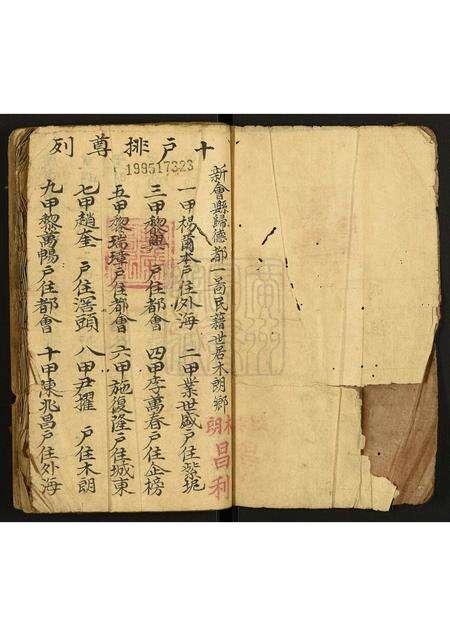 十戶排尊列
199517323
新會縣歸德都一啚民籍世居木朗鄉
一甲楊爾本戶住外海
二甲業世盛戶住紫坭
三甲黎興 戶住都會
四甲李萬春戶住企榜
五甲黎瑞璋戶住都會
六甲施復隆戶住城東
七甲趙奎 戶住滘頭
八甲尹擢 戶住木朗
九甲黎萬暢戶住都會
十甲陳兆昌戶住外海
朗
昌利